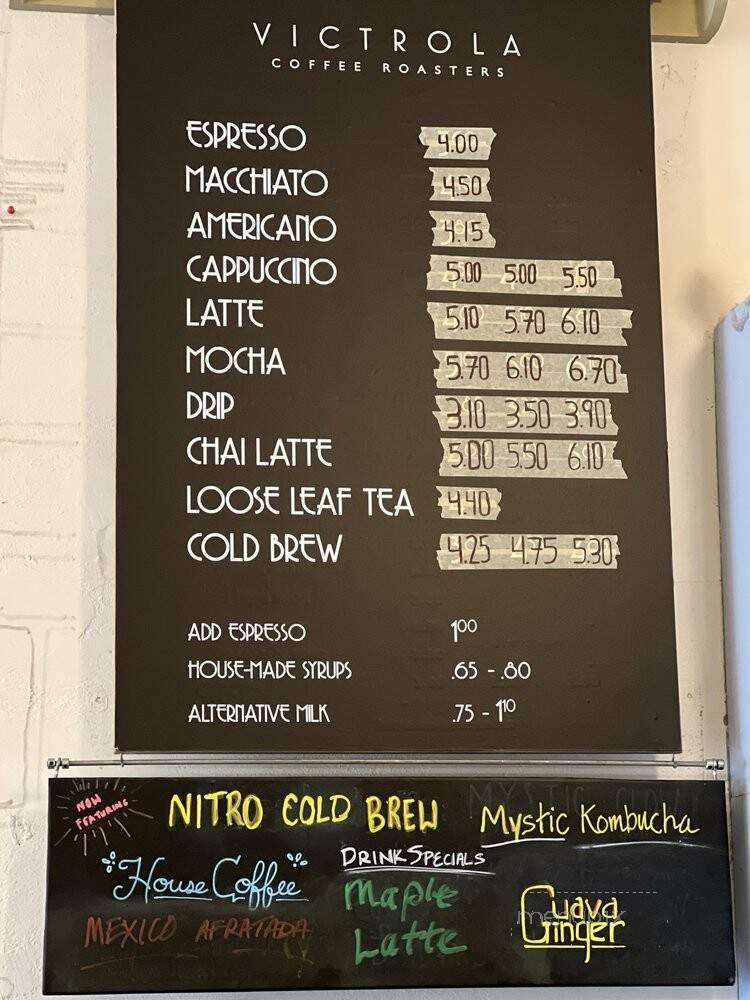 VICTROLA
COFFEE ROASTERS
ESPRESSO 4.00
MACCHIATO 4.50
AMERICANO 4.15
CAPPUCCINO 5.00 5.00 5.50
LATTE 5.10 5.70 6.10
MOCHA 5.70 6.10 6.70
DRIP 3.10 3.50 3.90
CHAI LATTE 5.00 5.50 6.10
LOOSE LEAF TEA 4.40
COLD BREW 4.25 4.75 5.30
ADD ESPRESSO 1.00
HOUSE-MADE SYRUPS .65 - .80
ALTERNATIVE MILK .75 - 1.10
NOW FEATURING
NITRO COLD BREW
Mystic Kombucha
House Coffee
MEXICO AFRATADA
DRINK SPECIALS
Maple
Latte
Guava
Ginger